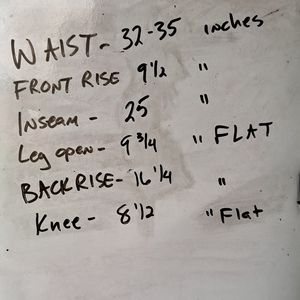 WAIST - 32-35 inches
FRONT RISE 9 1/2 "
Inseam - 25 "
Leg open - 9 3/4 " FLAT
BACK RISE - 16 1/4 "
Knee - 8 1/2 " Flat